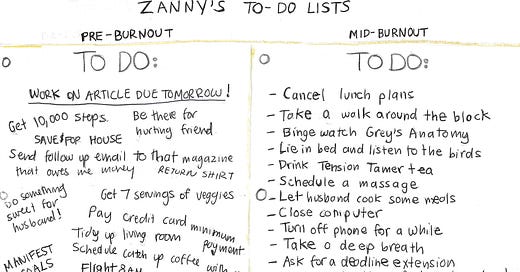 ZANNY'S TO-DO LISTS
PRE-BURNOUT
TO DO:
WORK ON ARTICLE DUE TOMORROW!
Get 10,000 steps.
Be there for
hurting friend.
SAVE FOR HOUSE
Send follow up email to that magazine
that owes me money
RETURN SHIRT
Do something
sweet for
husband!
Get 7 servings of veggies
Pay credit card minimum
payment
Tidy up living room
Schedule catch up coffee with
MANIFEST
GOALS
MID-BURNOUT
TO DO:
- Cancel lunch plans
- Take a walk around the block
- Binge watch Grey's Anatomy
- Lie in bed and listen to the birds
- Drink Tension Tamer tea
- Schedule a massage
- Let husband cook some meals
- Close computer
- Turn off phone for a while
- Take a deep breath
- Ask for a deadline extension